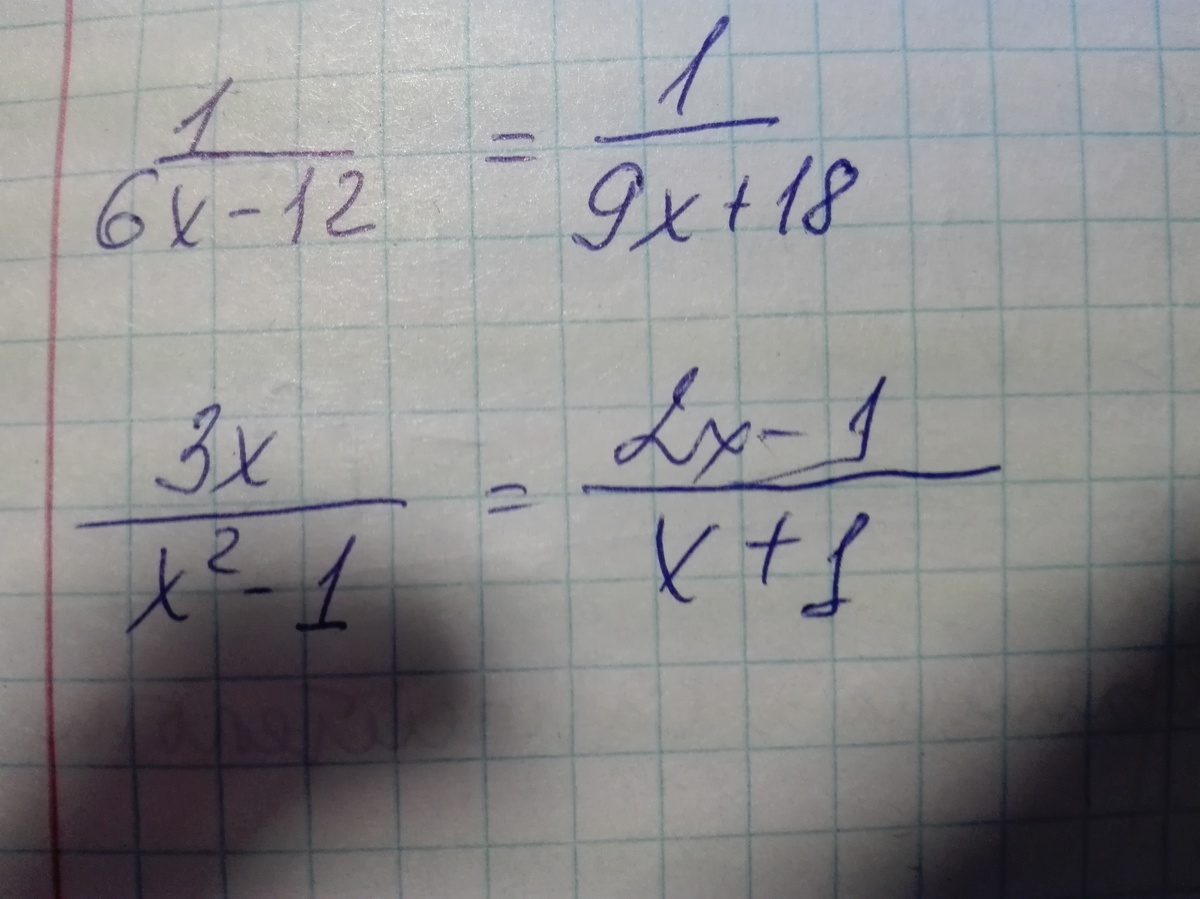 1/(6x-12) = 1/(9x+18)
3x/(x²-1) = (2x-1)/(x+1)